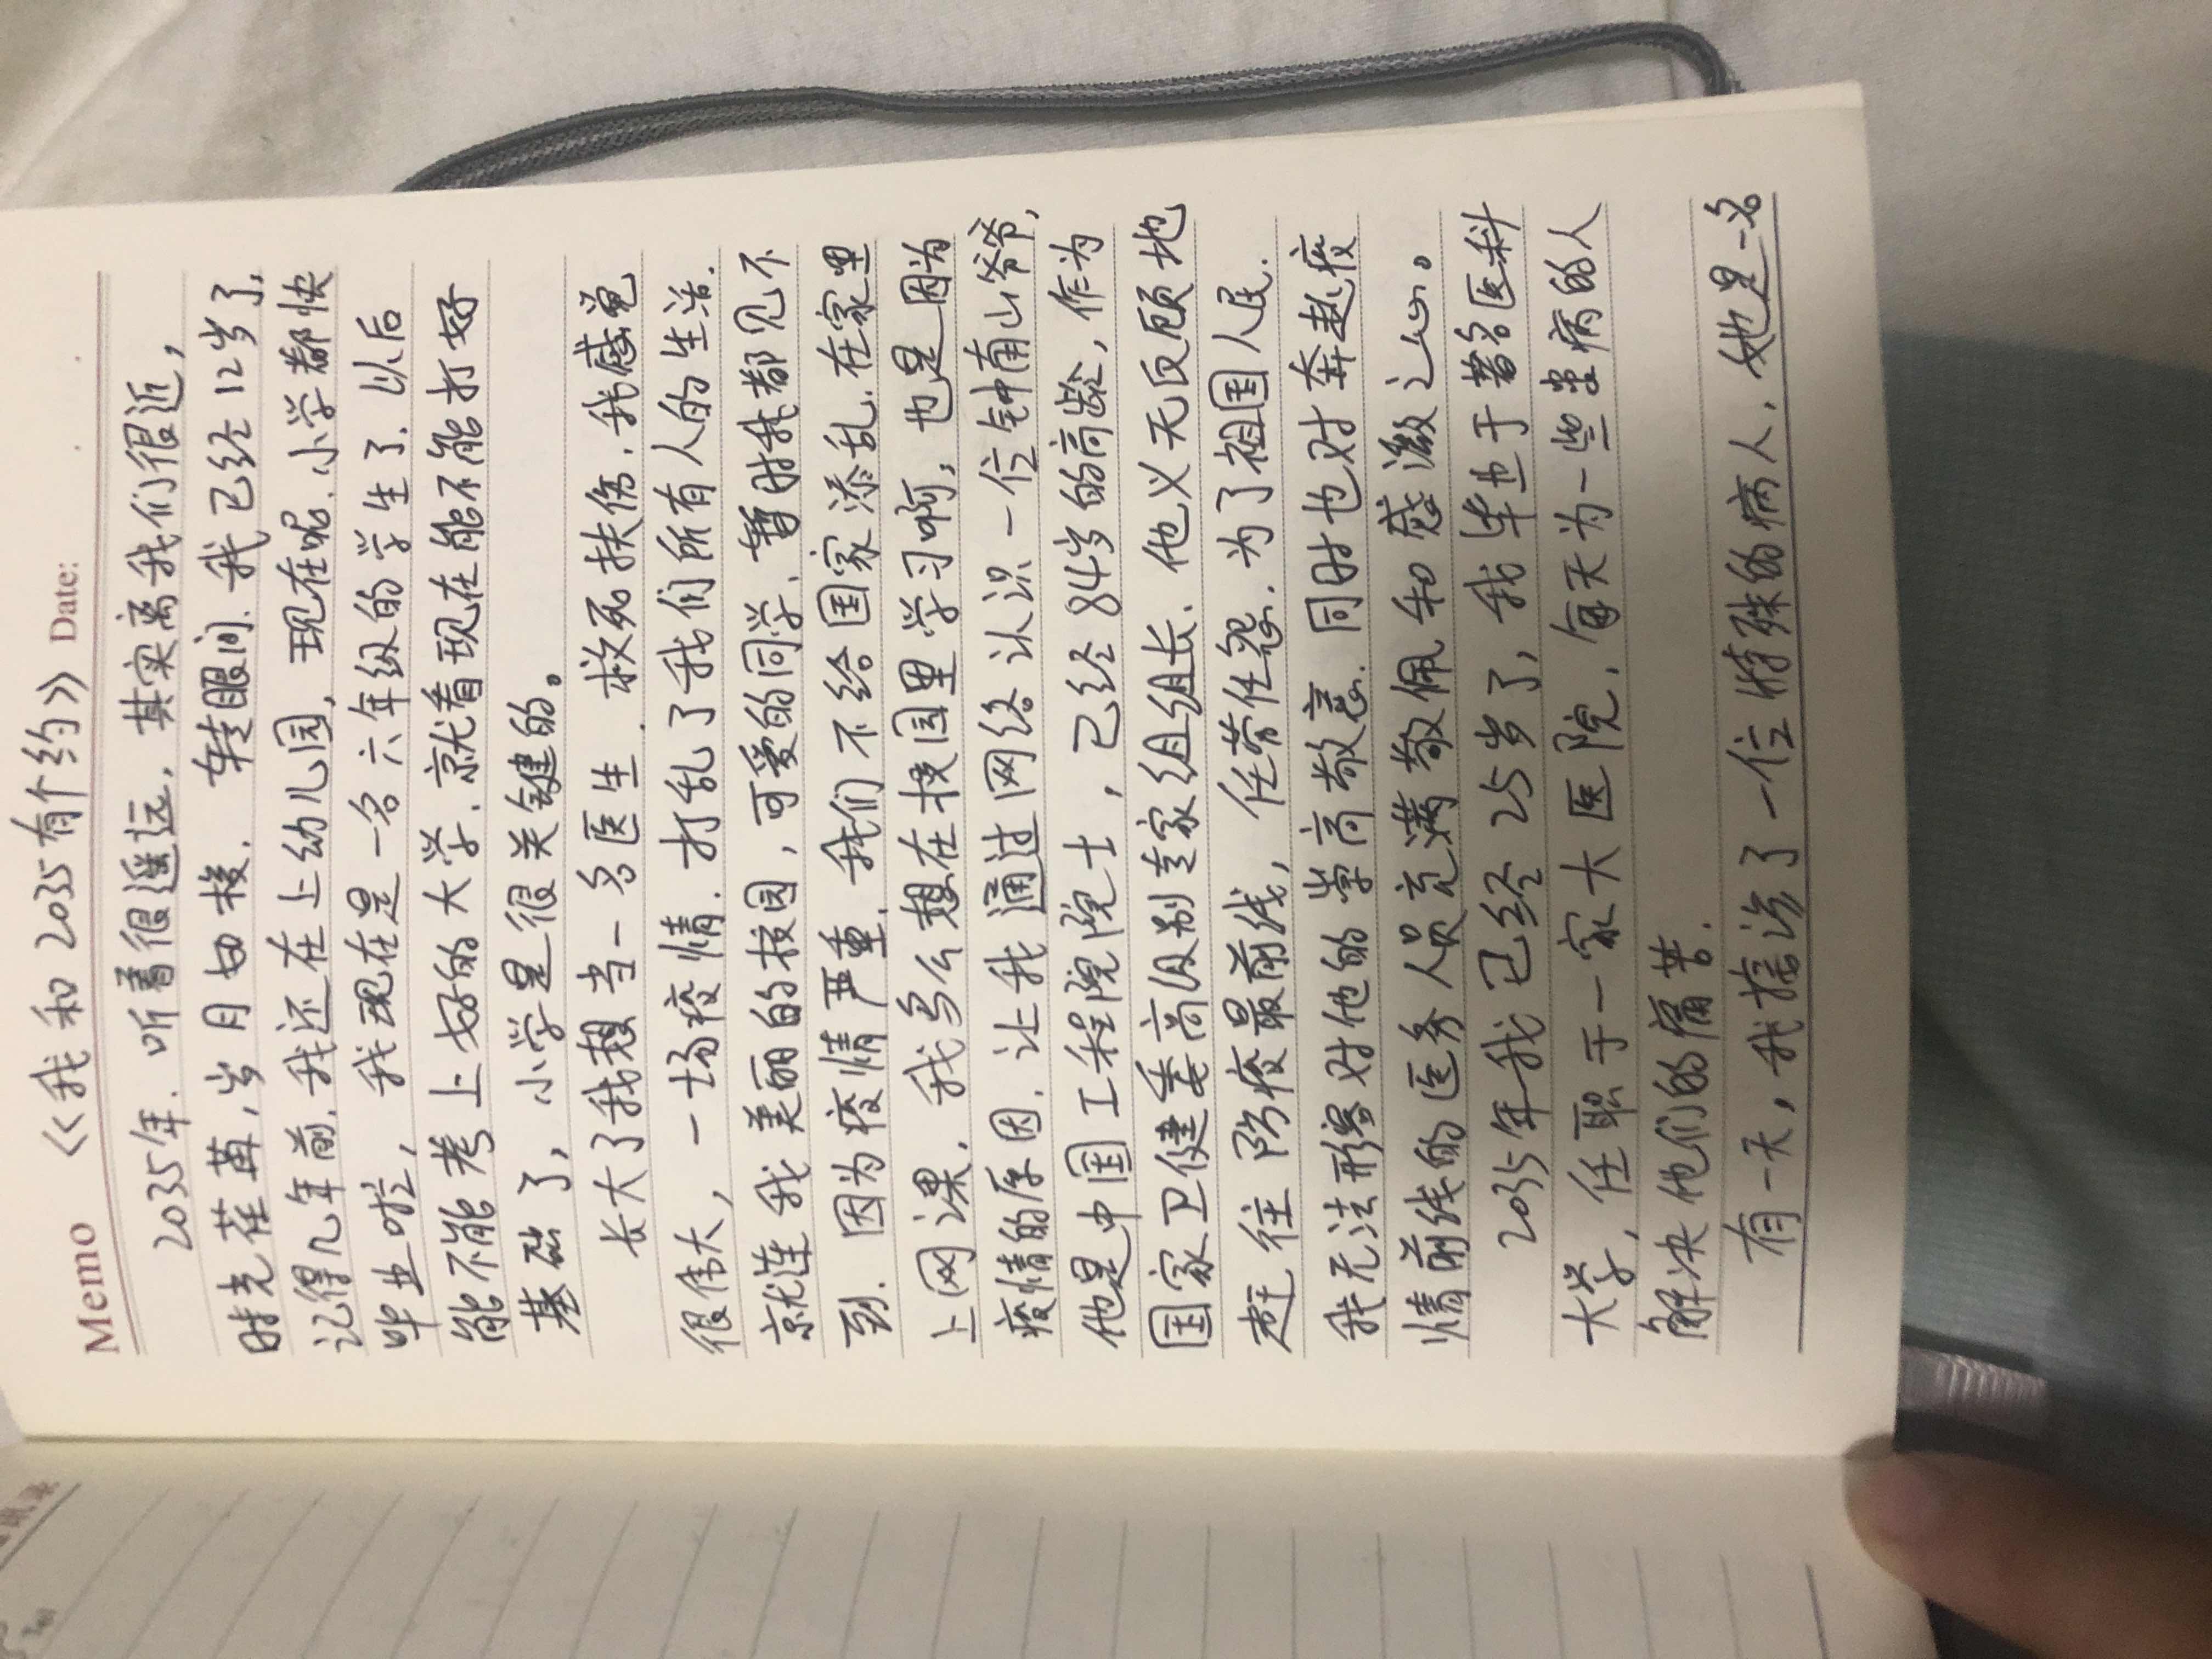 Memo 《我和2035有个约》 Date:
2035年.听着很遥远,其实离我们很近,
时光荏苒,岁月如梭.转眼间.我已经12岁了,
记得几年前.我还在上幼儿园,现在呢.小学都快
毕业啦,我现在是一名六年级的学生了.以后
能不能考上好的大学.就看现在能不能打好
基础了,小学是很关键的。
长大了我想当一名医生.救死扶伤.我感觉
很伟大,一场疫情.打乱了我们所有人的生活.
就连我美丽的校园,可爱的同学.暂时我都见不
到.因为疫情严重.我们不给国家添乱.在家里
上网课.我多么想在校园里学习啊,也是因为
疫情的原因.让我通过网络认识一位钟南山爷爷,
他是中国工程院院士,已经84岁的高龄,作为
国家卫健委高级别专家组组长.他义无反顾地
赶往防疫最前线,任劳任怨.为了祖国人民.
我无法形容对他的崇高敬意.同时也对奔赴疫
情前线的医务人员充满敬佩和感激之心。
2035年我已经25岁了,我毕业于著名医科
大学,任职于一家大医院,每天为一些患病的人
解决他们的痛苦.
有一天,我接诊了一位特殊的病人.她是一名